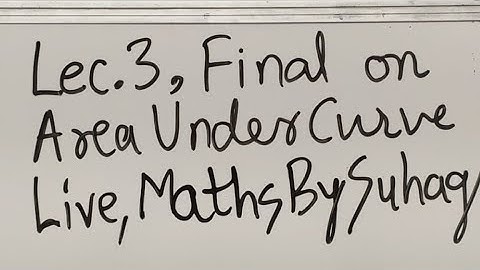 Lec.3, Final on
Area Under Curve
Live, Maths By Suhag